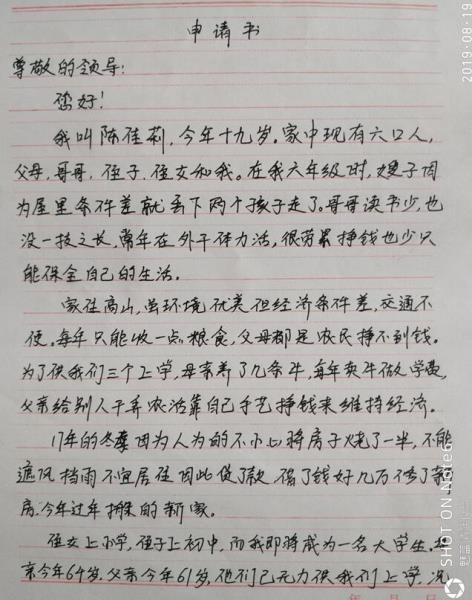 申请书
尊敬的领导:
您好!
我叫陈佳莉,今年十九岁。家中现有六口人,
父母,哥哥,侄子,侄女和我。在我六年级时,嫂子因
为屋里条件差就丢下两个孩子走了。哥哥读书少,也
没一技之长,常年在外干体力活,很劳累挣钱也少只
能保全自己的生活。
家住高山,虽环境优美但经济条件差,交通不
便。每年只能收一点粮食,父母都是农民挣不到钱。
为了供我们三个上学,母亲养了几条牛,每年卖牛做学费,
父亲给别人干弄农活靠自己手艺挣钱来维持经济。
17年的冬季因为人为的不小心将房子烧了一半,不能
遮风挡雨不宜居住因此贷了款,借了钱好几万修了
房.今年过年搬的新家。
侄女上小学,侄子上初中,而我即将成为一名大学生.
亲今年64岁,父亲今年61岁,他们已无力供我们上学,况
年 月 日
2019·08·19
SHOT ON Note9
魅蓝